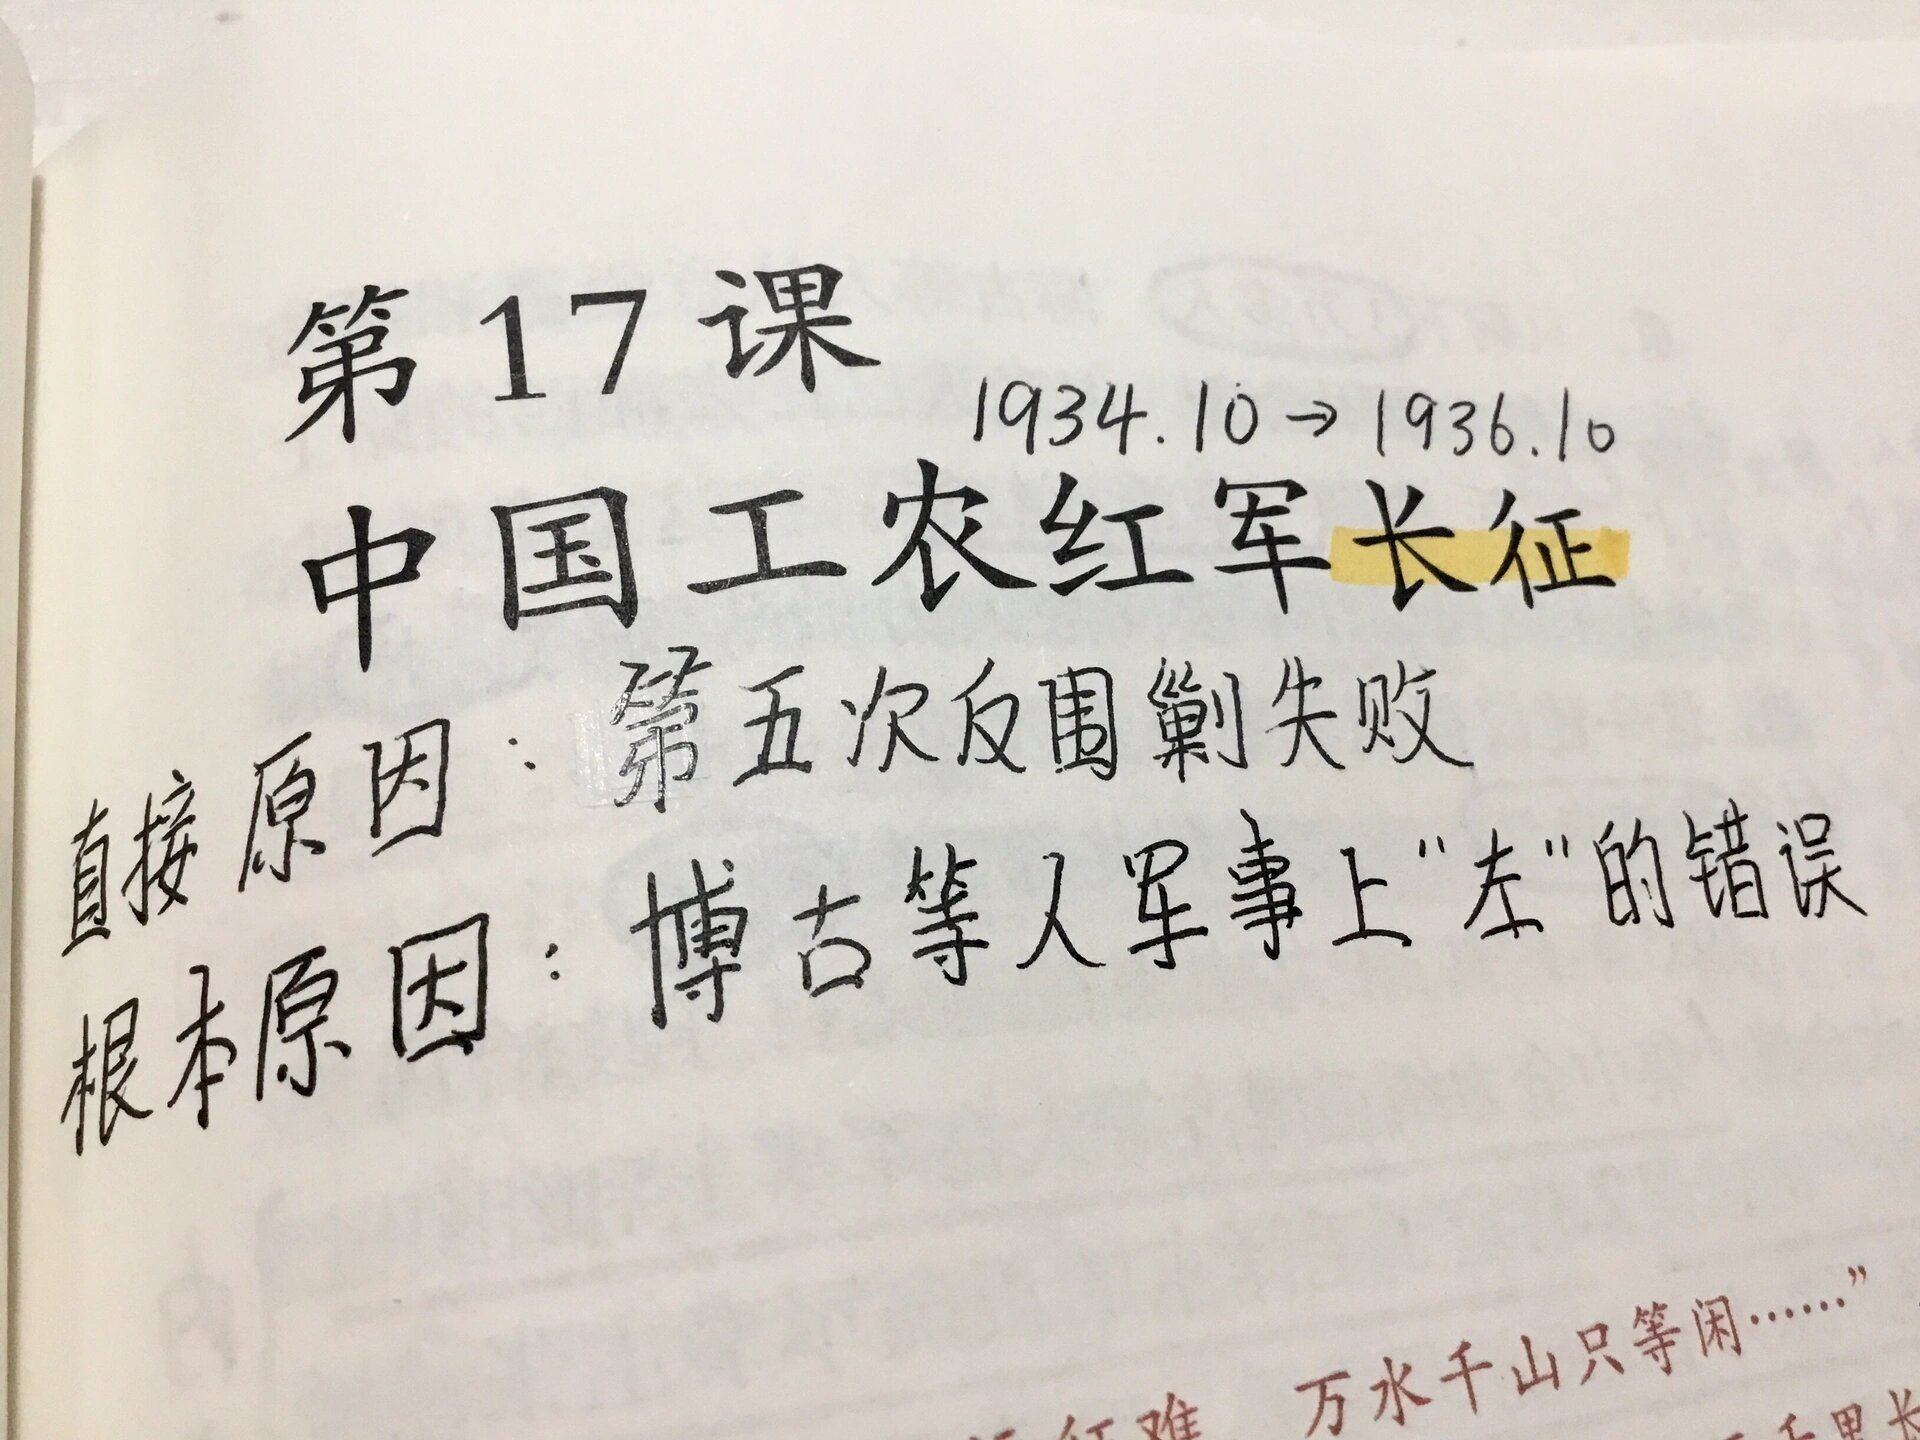 第17课
1934.10→1936.10
中国工农红军长征
直接原因：第五次反围剿失败
根本原因：博古等人军事上“左”的错误
万水千山只等闲……”
征难
千里长